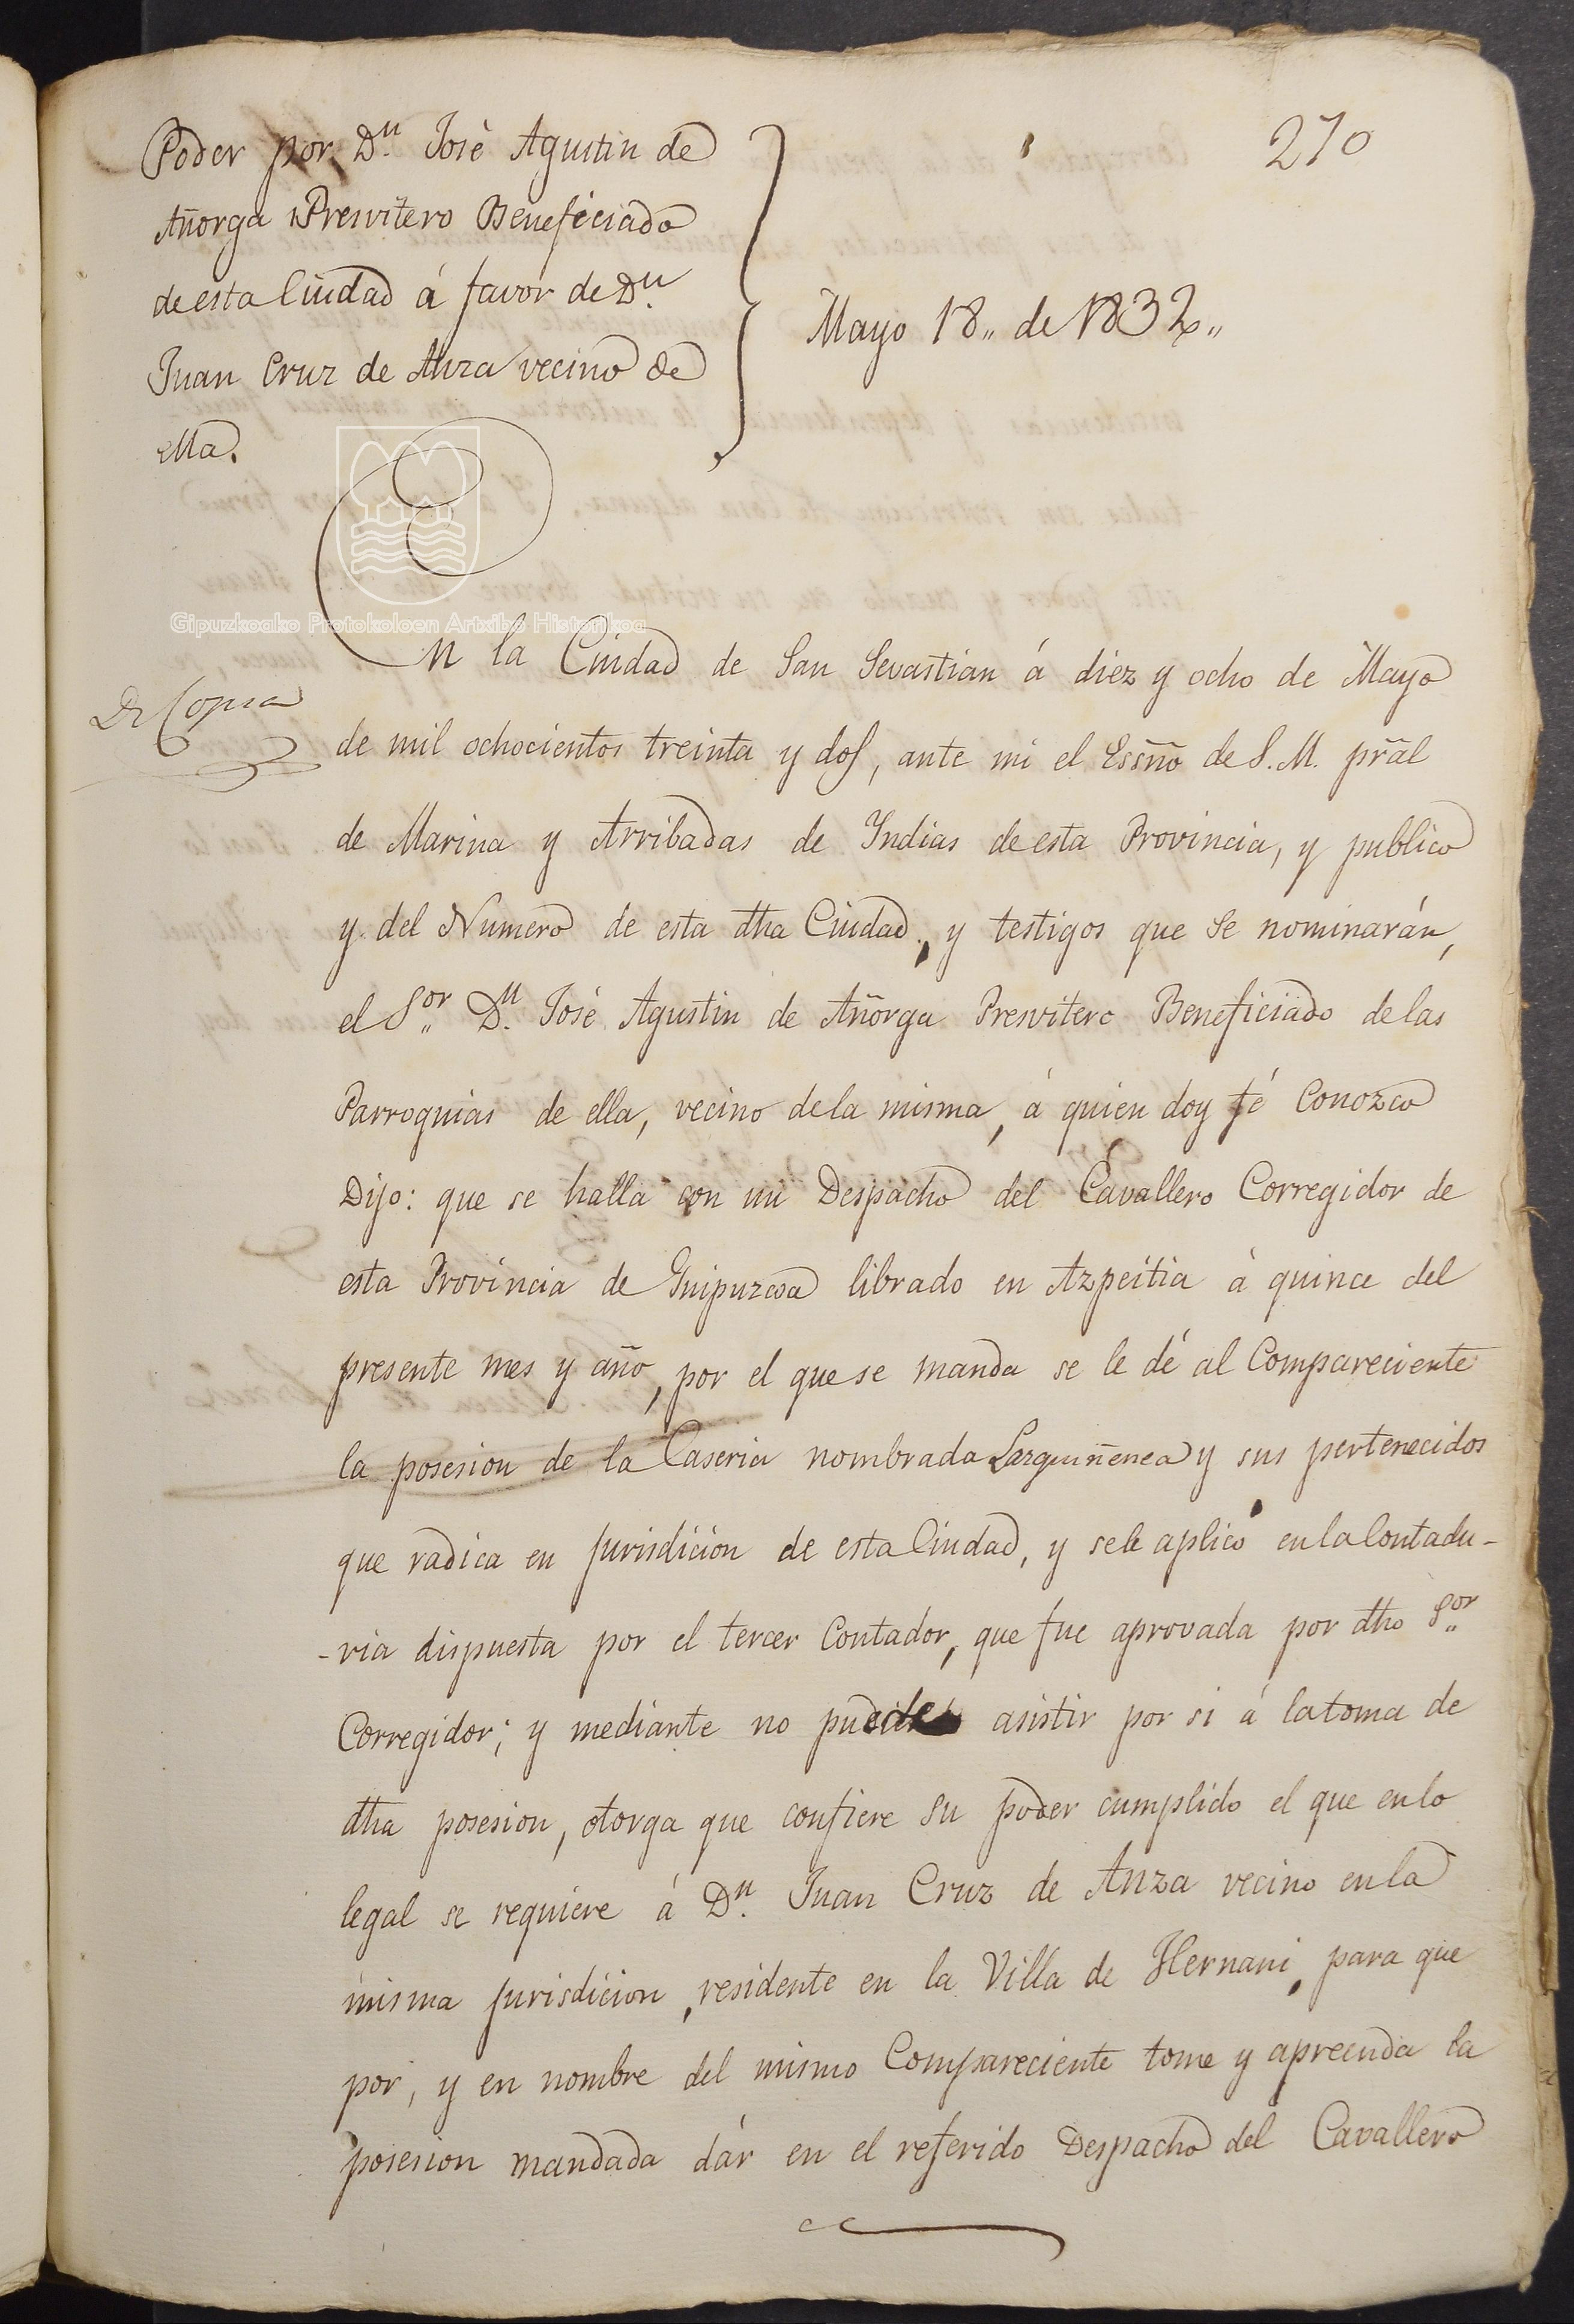 270
Poder por Dn. José Agustin de
Añorga Presvitero Beneficiado
de esta Ciudad á favor de Dn.
Juan Cruz de Anza vecino de
ella.
Mayo 18,, de 1832,,
Gipuzkoako Protokoloen Artxibo Historikoa
En la Ciudad de San Sevastian á diez y ocho de Mayo
Di Copia
de mil ochocientos treinta y dos, ante mi el Essño de S. M. pr̃al
de Marina y Arribadas de Yndias de esta Provincia, y publico
y del Numero de esta dha Ciudad, y testigos que se nominarán,
el Sor,, Dn. José Agustin de Añorga Presvitero Beneficiado de las
Parroquias de ella, vecino de la misma, á quien doy fé conozco
Dijo: que se halla con un Despacho del Cavallero Corregidor de
esta Provincia de Guipuzcoa librado en Azpeitia á quince del
presente mes y año, por el que se manda se le dé al Compareciente
la posesion de la Caseria nombrada Larguiñenea y sus pertenecidos
que radica en jurisdicion de esta Ciudad, y se le aplicó en la Contadu-
-ria dispuesta por el tercer Contador, que fue aprovada por dho Sor,,
Corregidor; y mediante no puede asistir por si á la toma de
dha posesion, otorga que confiere su poder cumplido el que en lo
legal se requiere á Dn. Juan Cruz de Anza vecino en la
misma jurisdicion, residente en la Villa de Hernani, para que
por, y en nombre del mismo Compareciente tome y apreenda la
posesion mandada dár en el referido Despacho del Cavallero